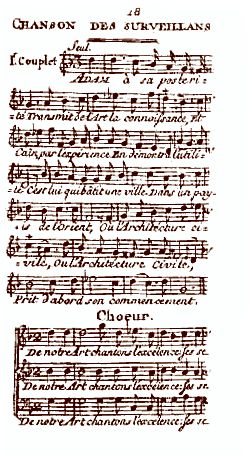 18
CHANSON DES SURVEILLANS
Seul.
1. Couplet
ADAM à sa posteri-
té Transmit de l'Art la connoissance, Et
Cain par l'experience En demontra l'utili-
té C'est lui qui bâtit une ville Dans un pay-
is de l'Orient, Ou l'Architecture ci-
vile, Ou l'Architecture Civile,
Prit d'abord son commencement.
Choeur.
De notre Art chantons l'excelence: Ses se
De notre Art chantons l'excelence: Ses se
De notre Art chantons l'excelence: Ses se